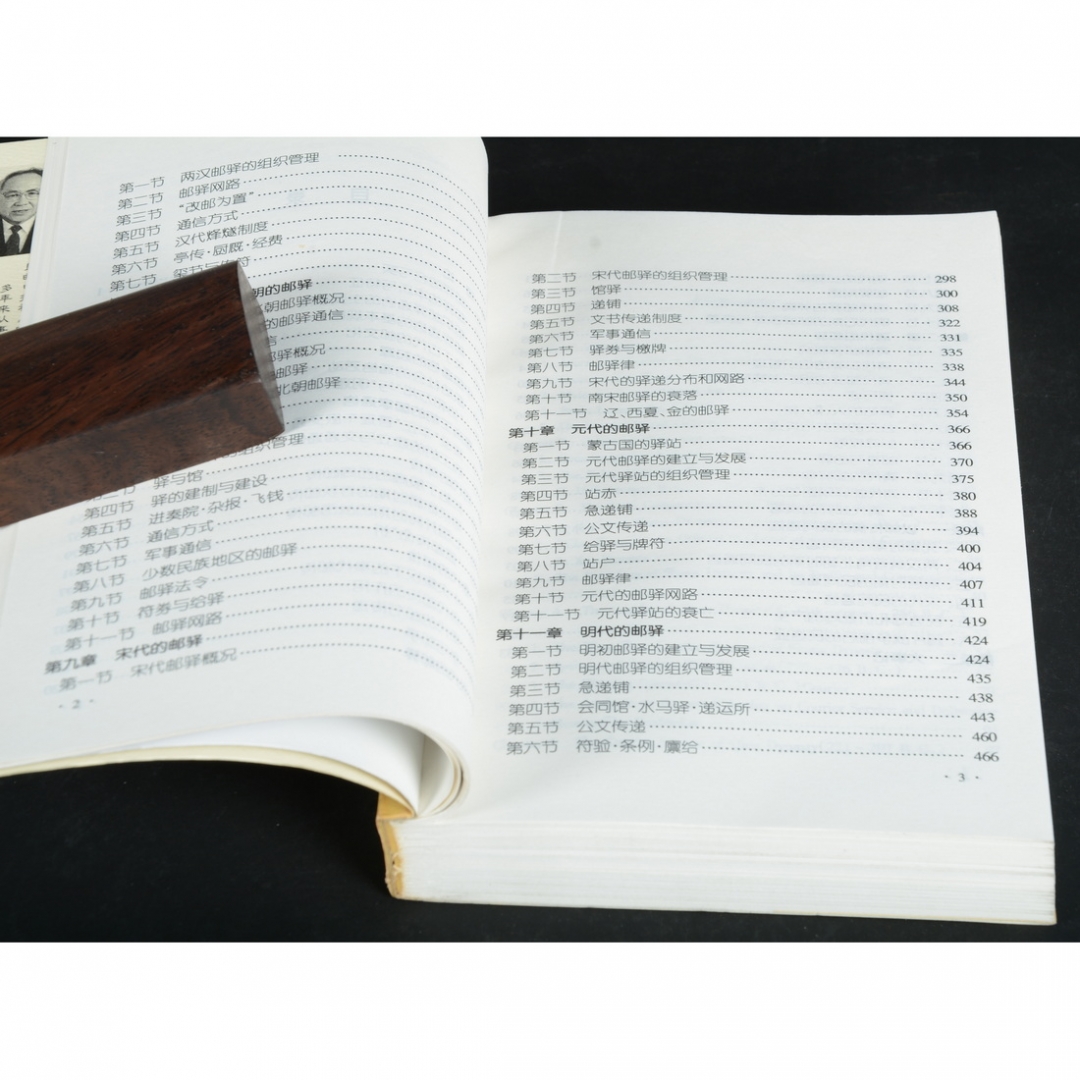 第一节 两汉邮驿的组织管理
第二节 邮驿网路
第三节 “改邮为置”
第四节 通信方式
第五节 汉代烽燧制度
第六节 亭传·厨厩·经费
第七节
朝的邮驿
朝邮驿概况
的邮驿通信
信
邮驿概况
邮驿
北朝邮驿
的组织管理
驿与馆
第四节 驿的建制与建设
第五节 进奏院·杂报·飞钱
第六节 通信方式
第七节 军事通信
第八节 少数民族地区的邮驿
第九节 邮驿法令
第十节 符券与给驿
第十一节 邮驿网路
第九章 宋代的邮驿
第一节 宋代邮驿概况
· 2 ·
第二节 宋代邮驿的组织管理 298
第三节 馆驿 300
第四节 递铺 308
第五节 文书传递制度 322
第六节 军事通信 331
第七节 驿券与檄牌 335
第八节 邮驿律 338
第九节 宋代的驿递分布和网路 344
第十节 南宋邮驿的衰落 350
第十一节 辽、西夏、金的邮驿 354
第十章 元代的邮驿 366
第一节 蒙古国的驿站 366
第二节 元代邮驿的建立与发展 370
第三节 元代驿站的组织管理 375
第四节 站赤 380
第五节 急递铺 388
第六节 公文传递 394
第七节 给驿与牌符 400
第八节 站户 404
第九节 邮驿律 407
第十节 元代的邮驿网路 411
第十一节 元代驿站的衰亡 419
第十一章 明代的邮驿 424
第一节 明初邮驿的建立与发展 424
第二节 明代邮驿的组织管理 435
第三节 急递铺 438
第四节 会同馆·水马驿·递运所 443
第五节 公文传递 460
第六节 符验·条例·廪给 466
· 3 ·